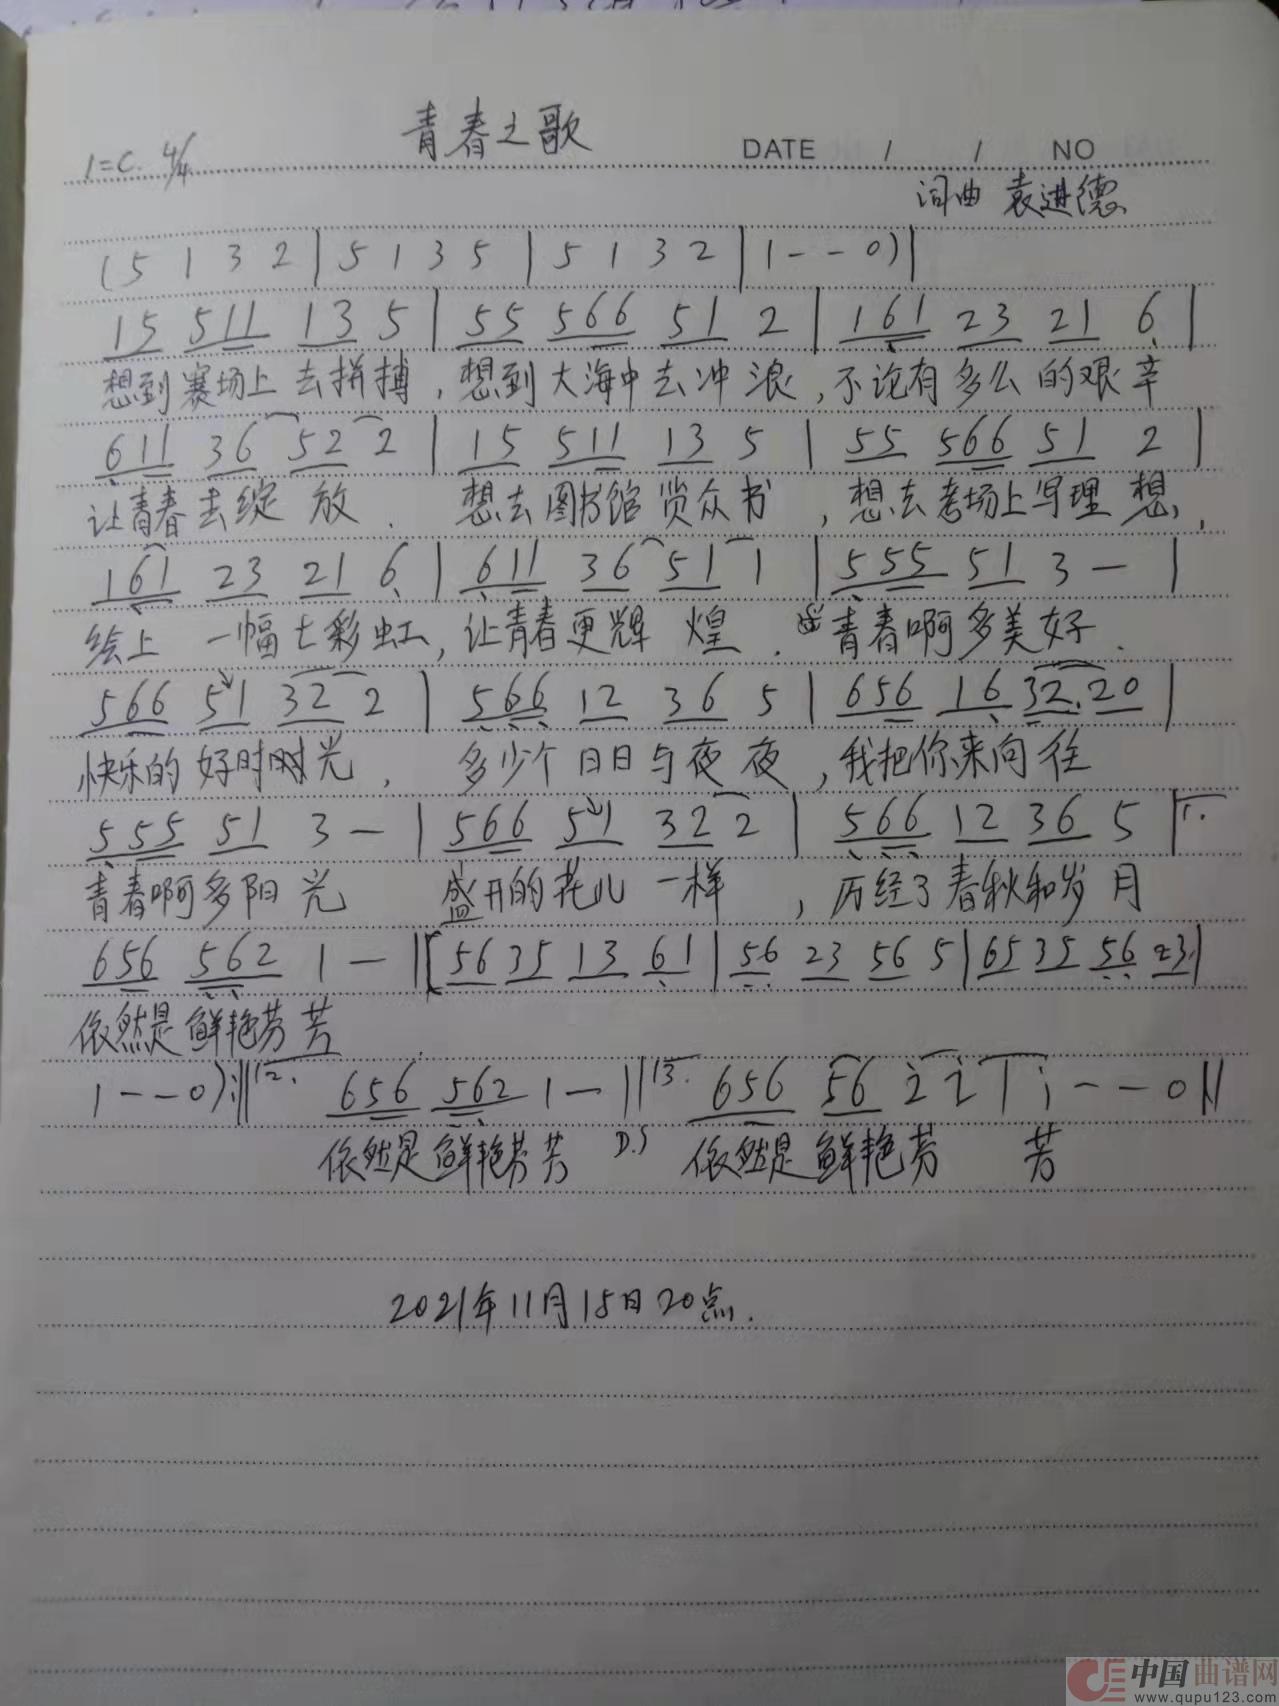 青春之歌
1=C. 4/4
DATE / / NO
词曲 袁进德
(5 1 3 2 | 5 1 3 5 | 5 1 3 2 | 1 - - 0) |
15 511 13 5 | 55 566 51 2 | 161 23 21 6 |
想到赛场上去拼搏,想到大海中去冲浪,不论有多么的艰辛
611 36 52 2 | 15 511 13 5 | 55 566 51 2 |
让青春去绽放. 想去图书馆览众书,想去考场上写理想,
161 23 21 6 | 611 36 51 1 | 555 51 3 - |
绘上一幅七彩虹,让青春更辉煌. 青春啊多美好.
566 51 32 2 | 566 12 36 5 | 656 16 32.20 |
快乐的好时光, 多少个日日与夜夜,我把你来向往
555 51 3 - | 566 51 32 2 | 566 12 36 5 | 1.
青春啊多阳光 盛开的花儿一样,历经了春秋和岁月
656 562 1 - | [56 35 13 61 | 56 23 56 5 | 65 35 56 23 |
依然是鲜艳芬芳
1 - - 0) :|| 2. 656 562 1 - || 3. 656 56 2̇ 2̇ | 1̇ - - 0 ||
依然是鲜艳芬芳 D.S 依然是鲜艳芬 芳
2021年11月15日20点.
中国曲谱网
www.qupu123.com